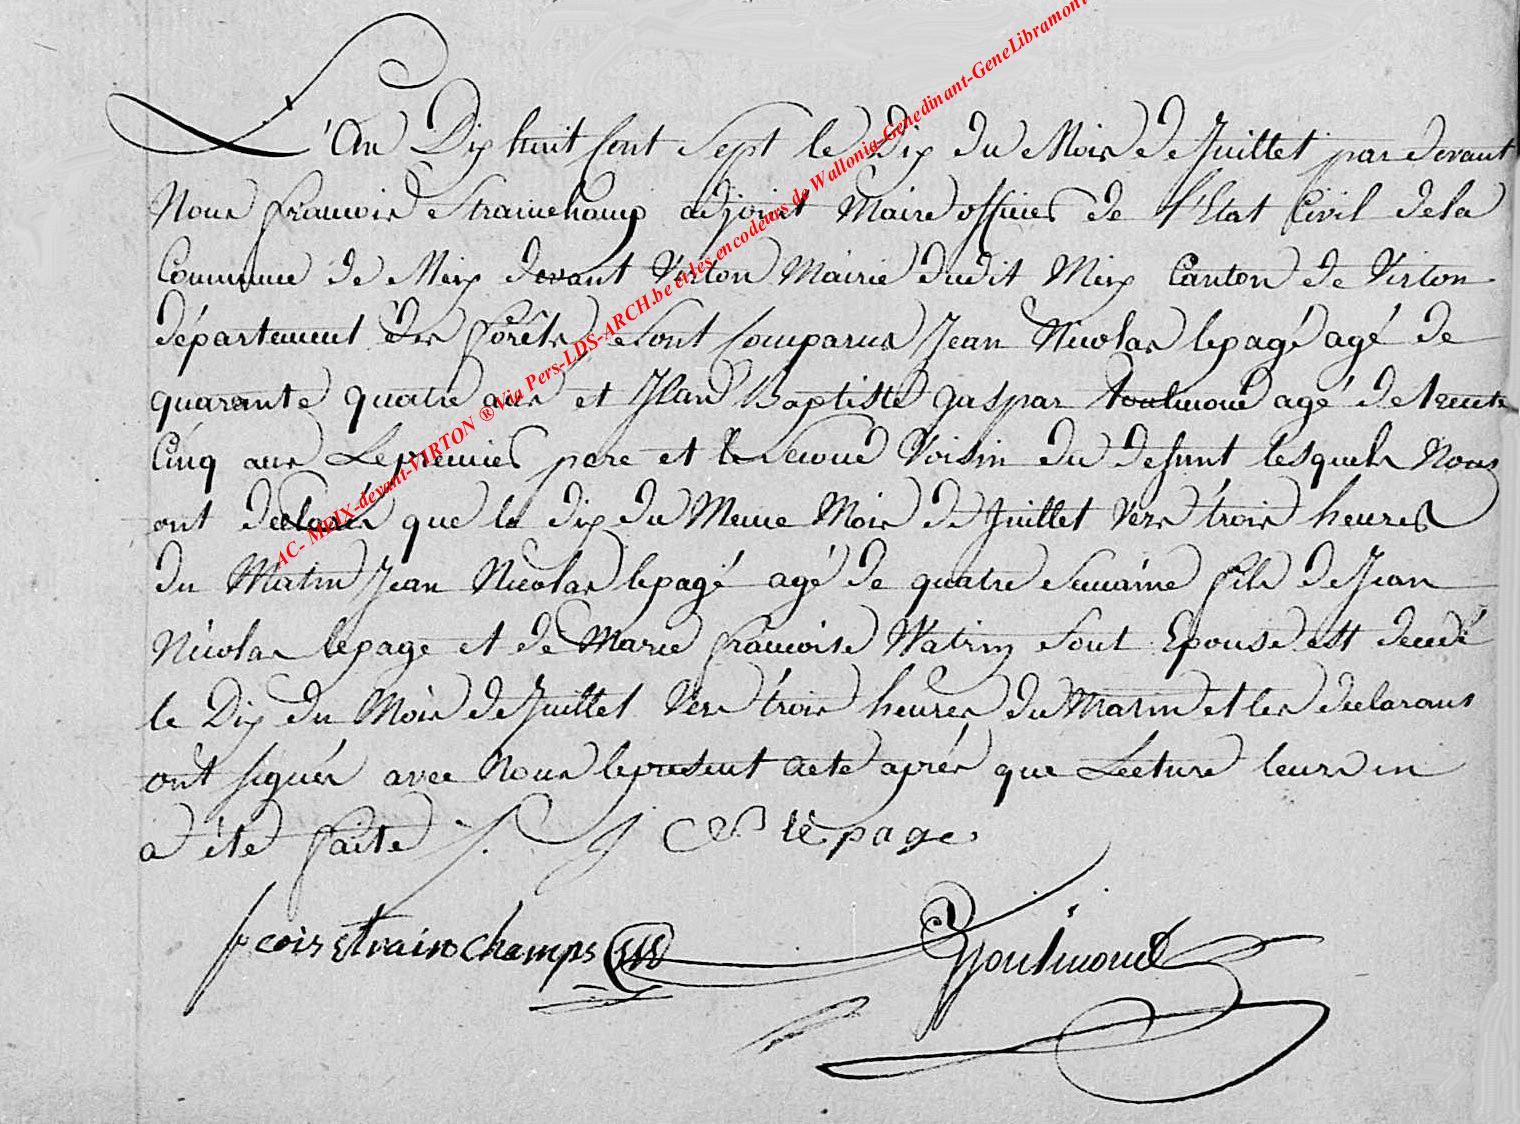 L'An Dix huit Cent Sept le Dix du Mois de Juillet par devant
Nous francois Strainchamp adjoint Maire officier de l'Etat Civil de la
Commune de Meix devant Virton Mairie dudit Meix Canton de Virton
département des forêts, sont Comparus Jean Nicolas lepagé agé de
quarante quatre ans et Jean Baptiste gaspar toulmond agé de trente
Cinq ans Le premier pere et le second Voisin du defunt lesquels Nous
ont declaré que le dix du Meme Mois de Juillet Vers trois heures
du Matin Jean Nicolas lepagé agé de quatre Semaine fils de Jean
Nicolas lepage et de Marie francoise Watrin sont Epouse est decedé
le Dix du Mois de Juillet Vers trois heures du Matin et les declarans
ont signés avec Nous le present acte aprés que Lecture leurs en
a été faite J lepage
fcois strainchamps
Toulmond
AC- MEIX-devant-VIRTON ® Via Pers-LDS-ARCH.be et les encodeurs de Wallonia-Genedinant-GeneLibramont